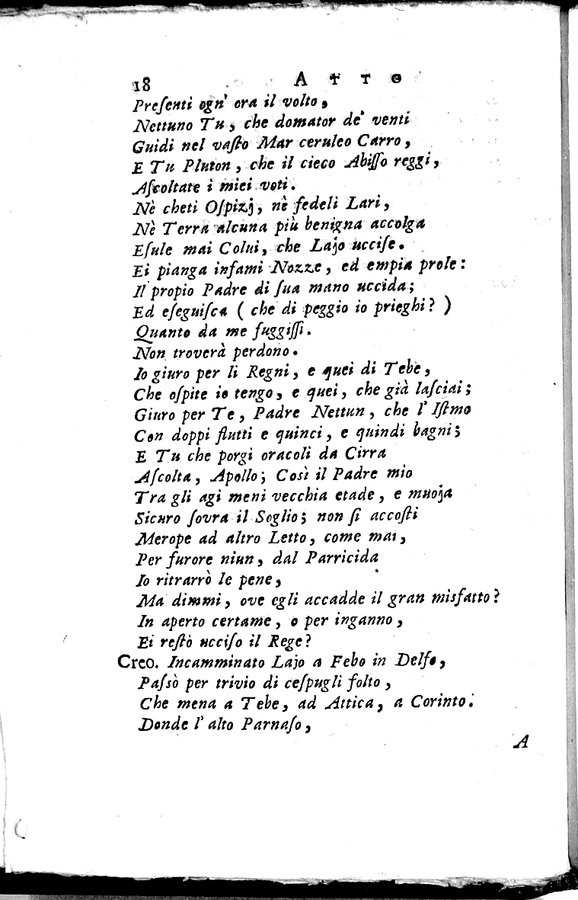 18 ATTO
Preſenti ogn' ora il volto,
Nettuno Tu, che domator de' venti
Guidi nel vaſto Mar ceruleo Carro,
E Tu Pluton, che il cieco Abiſſo reggi,
Aſcoltate i miei voti.
Nè cheti Oſpizj, nè fedeli Lari,
Nè Terra alcuna più benigna accolga
Eſule mai Colui, che Lajo ucciſe.
Ei pianga infami Nozze, ed empia prole:
Il propio Padre di ſua mano uccida;
Ed eſeguiſca (che di peggio io prieghi?)
Quanto da me fuggiſſi.
Non troverà perdono.
Io giuro per li Regni, e quei di Tebe,
Che oſpite io tengo, e quei, che già laſciai;
Giuro per Te, Padre Nettun, che l' Iſtmo
Con doppi flutti e quinci, e quindi bagni;
E Tu che porgi oracoli da Cirra
Aſcolta, Apollo; Così il Padre mio
Tra gli agi meni vecchia etade, e muoja
Sicuro ſovra il Soglio; non ſi accoſti
Merope ad altro Letto, come mai,
Per furore niun, dal Parricida
Io ritrarrò le pene,
Ma dimmi, ove egli accadde il gran misfatto?
In aperto certame, o per inganno,
Ei reſtò ucciſo il Rege?
Creo. Incamminato Lajo a Febo in Delfo,
Paſsò per trivio di ceſpugli folto,
Che mena a Tebe, ad Attica, a Corinto.
Donde l' alto Parnaſo,
A